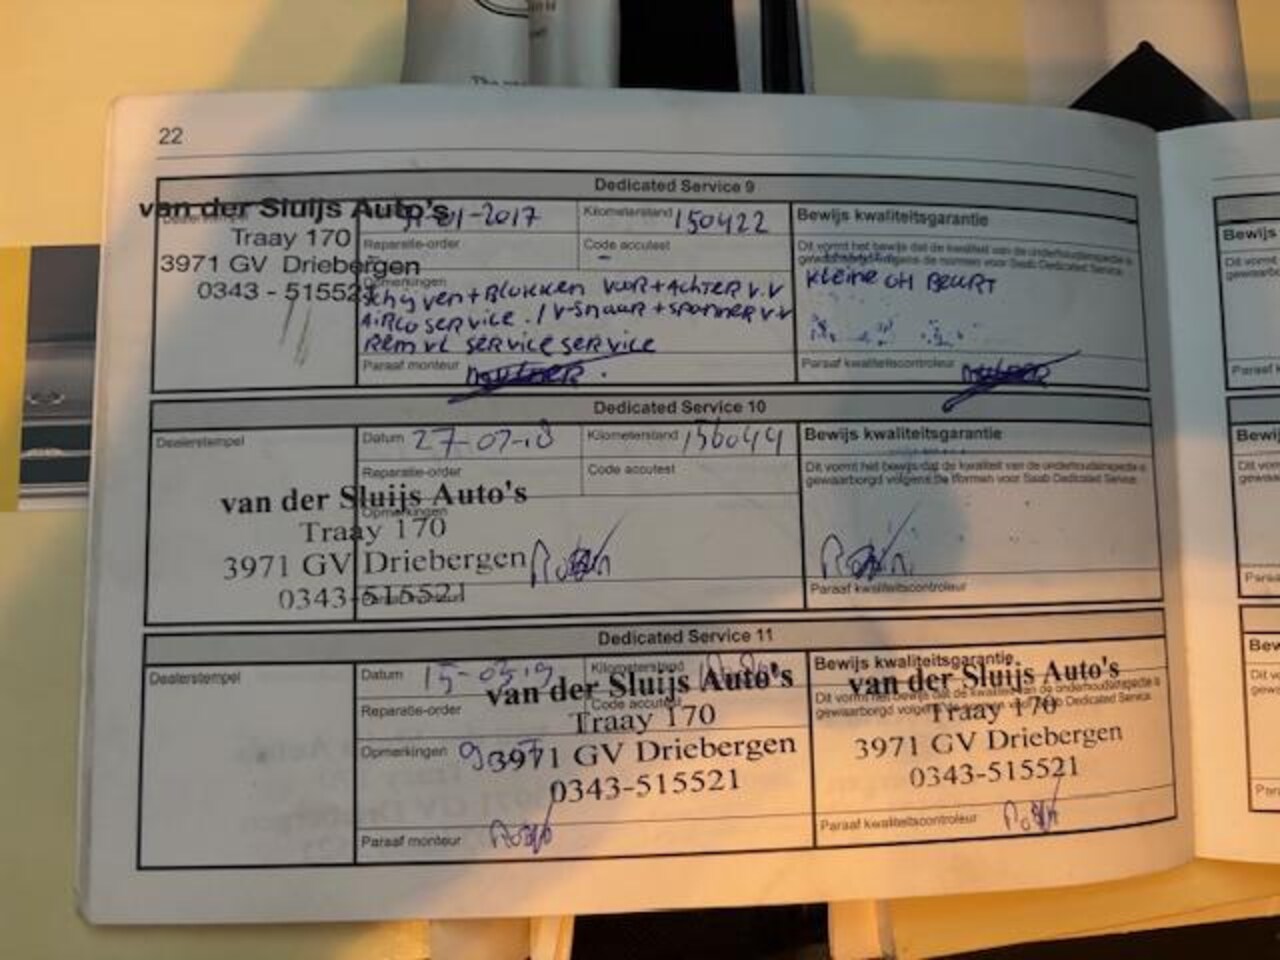 22
Dedicated Service 9
van der Sluijs Auto's
Traay 170
3971 GV Driebergen
0343 - 515521
-01-2017
Kilometerstand 150422
Reparatie-order
Code accutest
-
Opmerkingen
Schyven + Blokken voor + Achter v.v
Airco service. / V-snaar + spanner v.v
Rem vl service service
Paraaf monteur
Bewijs kwaliteitsgarantie
Dit vormt het bewijs dat de kwaliteit van de onderhoudsinspectie is
gewaarborgd volgens de normen voor Saab Dedicated Service.
Kleine OH Beurt
Paraaf kwaliteitscontroleur
Dedicated Service 10
Dealerstempel
Datum 27-07-18
Kilometerstand 156044
Reparatie-order
Code accutest
Opmerkingen
van der Sluijs Auto's
Traay 170
3971 GV Driebergen
0343-515521
Bewijs kwaliteitsgarantie
Dit vormt het bewijs dat de kwaliteit van de onderhoudsinspectie is
gewaarborgd volgens de normen voor Saab Dedicated Service.
Paraaf kwaliteitscontroleur
Dedicated Service 11
Dealerstempel
Datum 15-03-19
Kilometerstand
Reparatie-order
Code accutest
Opmerkingen
van der Sluijs Auto's
Traay 170
3971 GV Driebergen
0343-515521
Paraaf monteur
Bewijs kwaliteitsgarantie.
Dit vormt het bewijs dat de kwaliteit van de onderhoudsinspectie is
gewaarborgd volgens de normen voor Saab Dedicated Service.
van der Sluijs Auto's
Traay 170
3971 GV Driebergen
0343-515521
Paraaf kwaliteitscontroleur
Bewijs
Dit vorm
gewaar
Paraaf k
Bewij
Dit vor
gewaa
Paraa
Bew
Dit v
gewa
Par